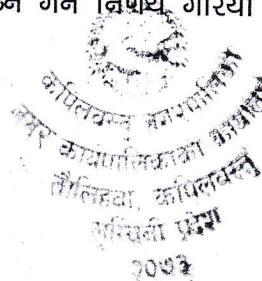 गर्ने निर्णय गरियो
कपिलवस्तु नगरपालिका
नगर कार्यपालिकाको कार्यालय
तौलिहवा, कपिलवस्तु
लुम्बिनी प्रदेश
२०७३